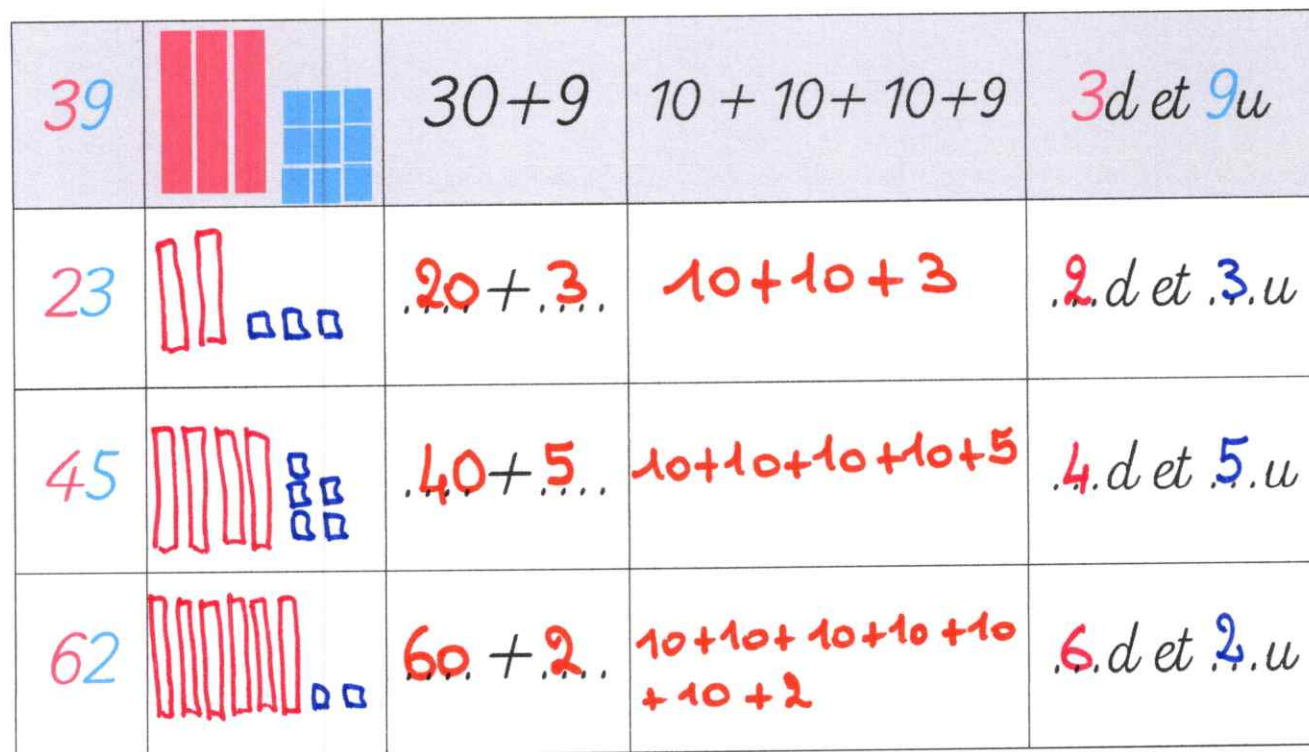 39 30+9 10 + 10 + 10+9 3d et 9u
23 20 + 3 10+10+3 2d et 3u
45 40 + 5 10+10+10+10+5 4d et 5u
62 60 + 2 10+10+10+10+10 6d et 2u
+10+2